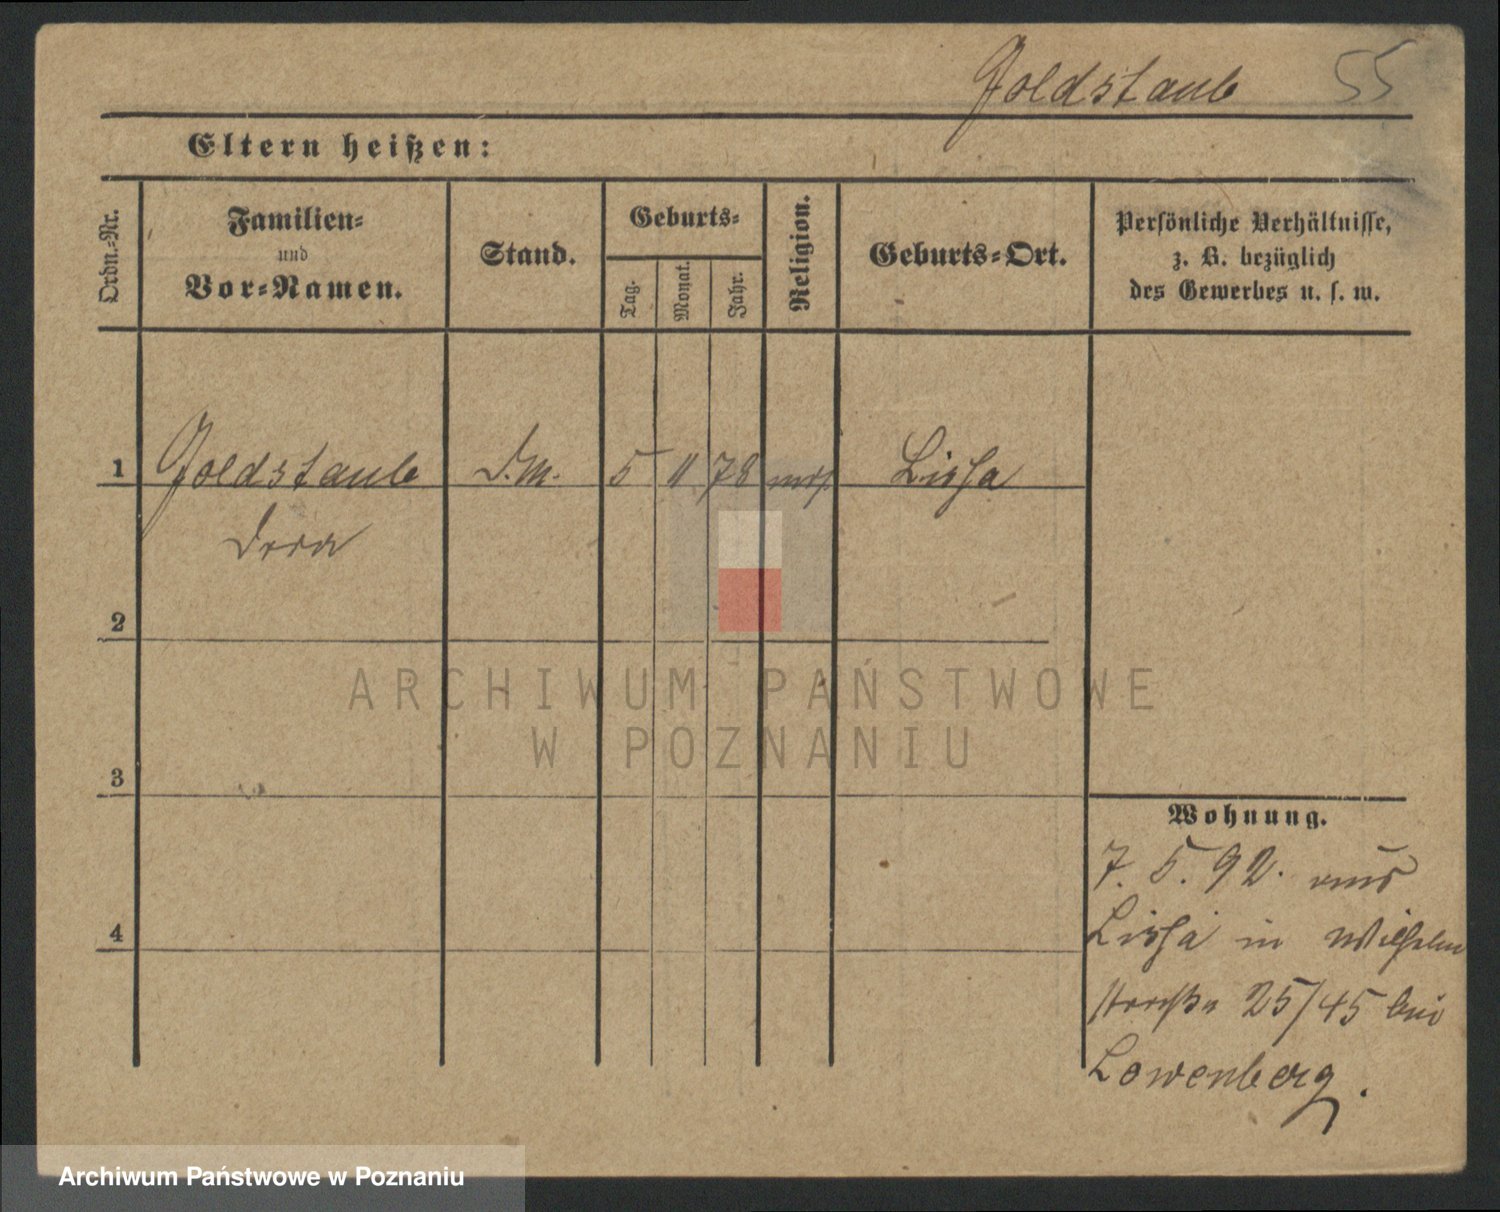 Goldstaub 55
Eltern heißen:
Ordn.-Nr.
Familien-
und
Vor-Namen.
Stand.
Geburts-
Tag.
Monat.
Jahr.
Religion.
Geburts-Ort.
Persönliche Verhältnisse,
z. B. bezüglich
des Gewerbes u. s. w.
1 Goldstaub D.M. 5 11 78 mos. Lissa
Dora
2
3
4
Wohnung.
7. 5. 92. aus
Lissa in Wilhelm
straße 25/45 bei
Lowenberg.
ARCHIWUM PAŃSTWOWE
W POZNANIU
Archiwum Państwowe w Poznaniu